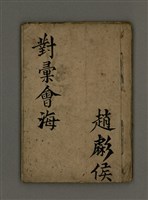 對彙會海
趙彪侯